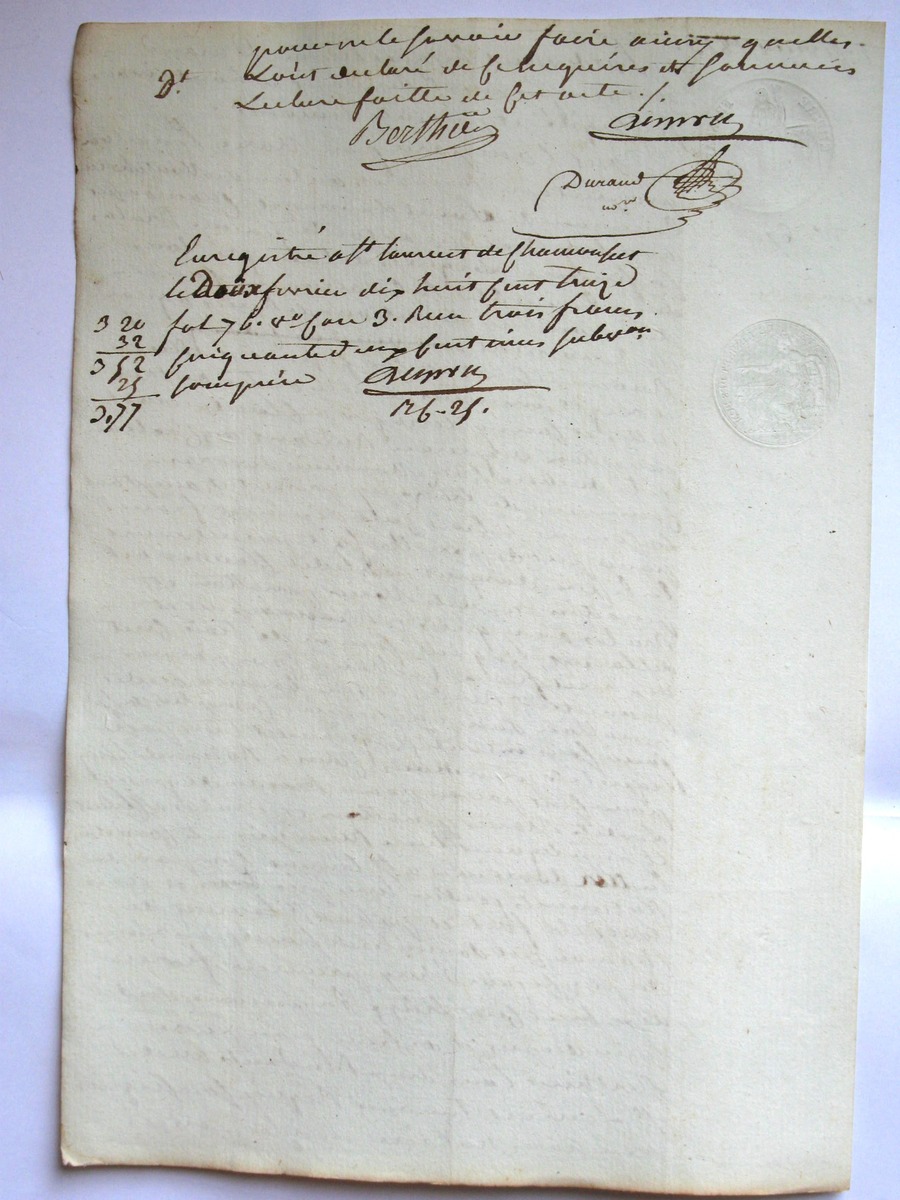 pour ne le savoir faire ainsy quelles
Dt. L'ont déclaré de ce enquires et sommées
Lecture faitte de cet acte ./.
Berthié Simon
Durand
nre
Enregistré a St Laurent de Chamousset
le Deux fevrier dix huit cent treize
3 20 fol 76. vo Case 3. Recu trois francs
32 cinquante deux centimes subvon
3 52 comprise Simon
25
3.77 26-25.